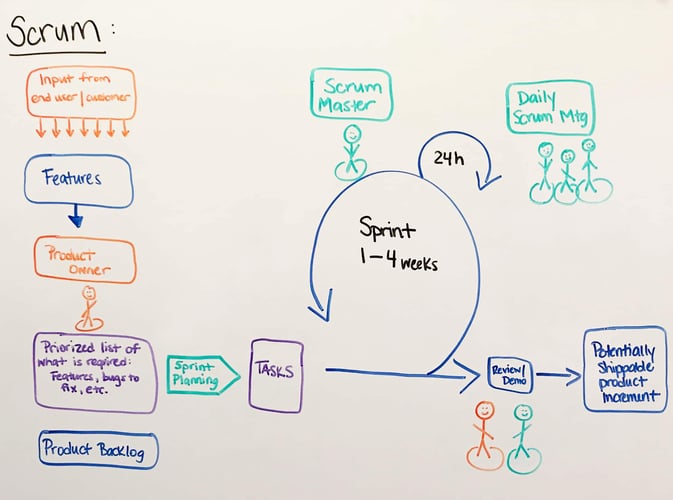 Scrum:
Input from
end user/customer
Features
Product
Owner
Priorized list of
what is required:
Features, bugs to
fix, etc.
Product Backlog
Sprint
Planning
TASKS
Scrum
Master
24h
Daily
Scrum Mtg
Sprint
1-4 weeks
Review/
Demo
Potentially
Shippable
product
Increment